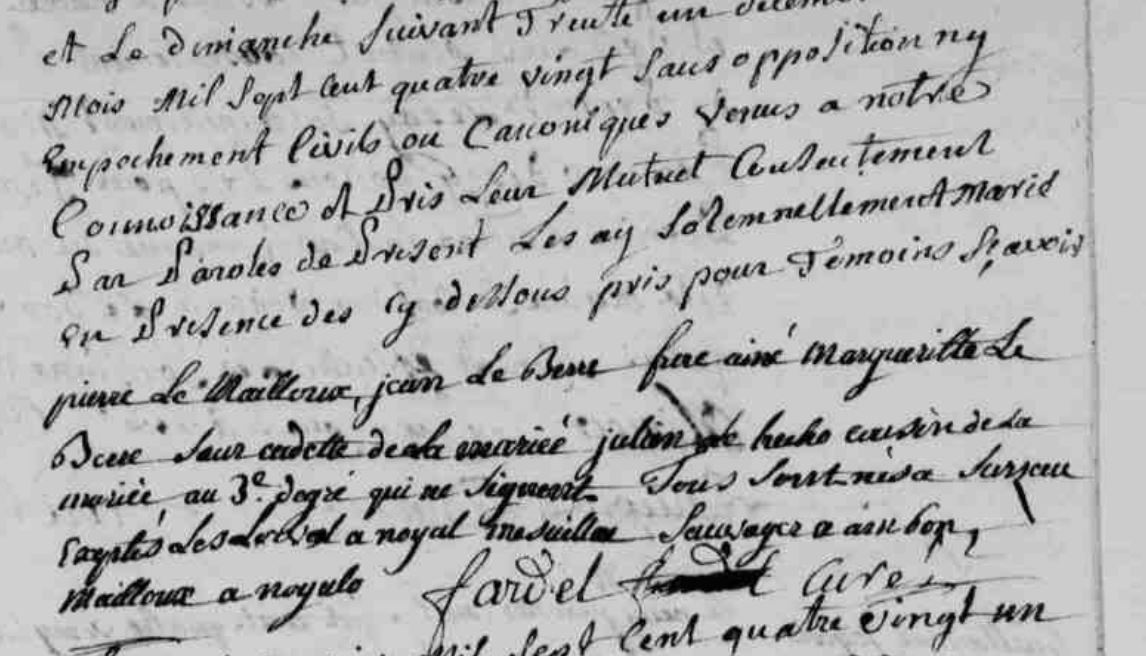 et Le dimanche Suivant Trente un decem
Mois Mil Sept Cent quatre vingt Sans opposition ny
Empechement Civils ou Canoniques Venus a notre
Connoissance et Pris Leur Mutuel Consentement
Par Paroles de Present Les ay Solemnellement Mariés
En Presence des Cy dessous pris pour Temoins Sçavoir
pierre Le Mailloux, jean Le Berre frere ainé Margueritte Le
Berre Sœur cadette de la mariée julien le hecho cousin de La
mariée, au 3e. degré qui ne Signent Tous Sont nés a Surzeau
Exeptés Les a noyal Sauvager a ambon,
Mailloux a noyalo fardel Curé
Mil Sept Cent quatre vingt un